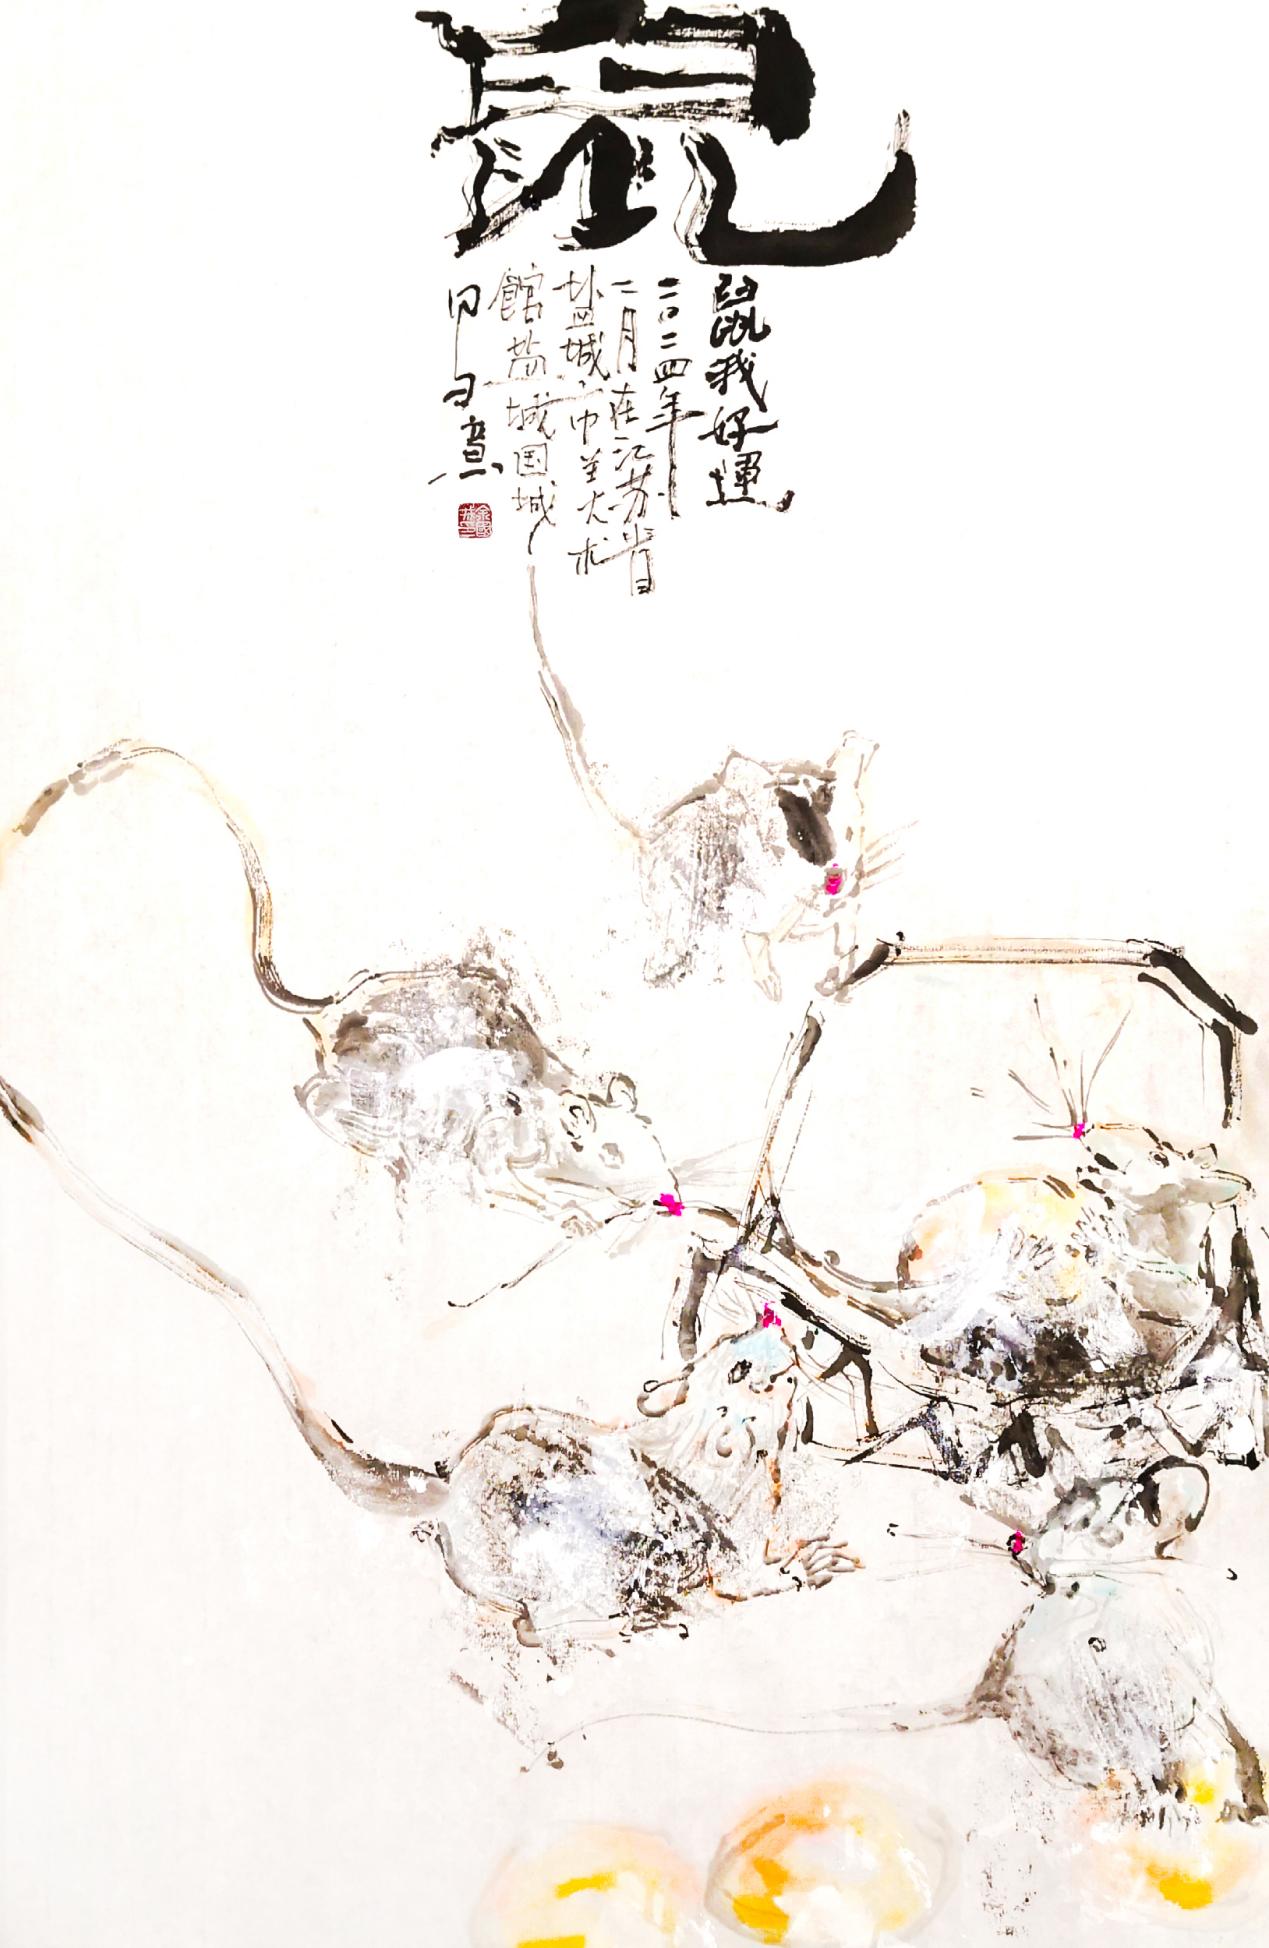 鼠
鼠我好運
二〇二四年
二月在江苏省
盐城市美术
館盐城国城